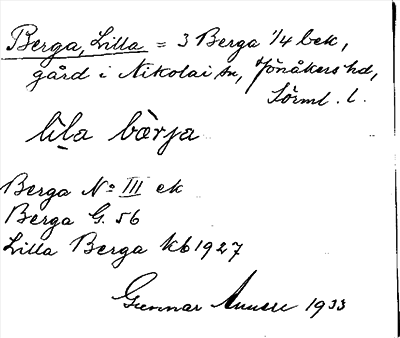 Berga, Lilla = 3 Berga 1/4 bek,
gård i Nikolai sn, Jönåkers hd,
Sörml. l.
lìla bàrja
Berga No III ek
Berga G. 56
Lilla Berga kb 1927
Gunnar 1933